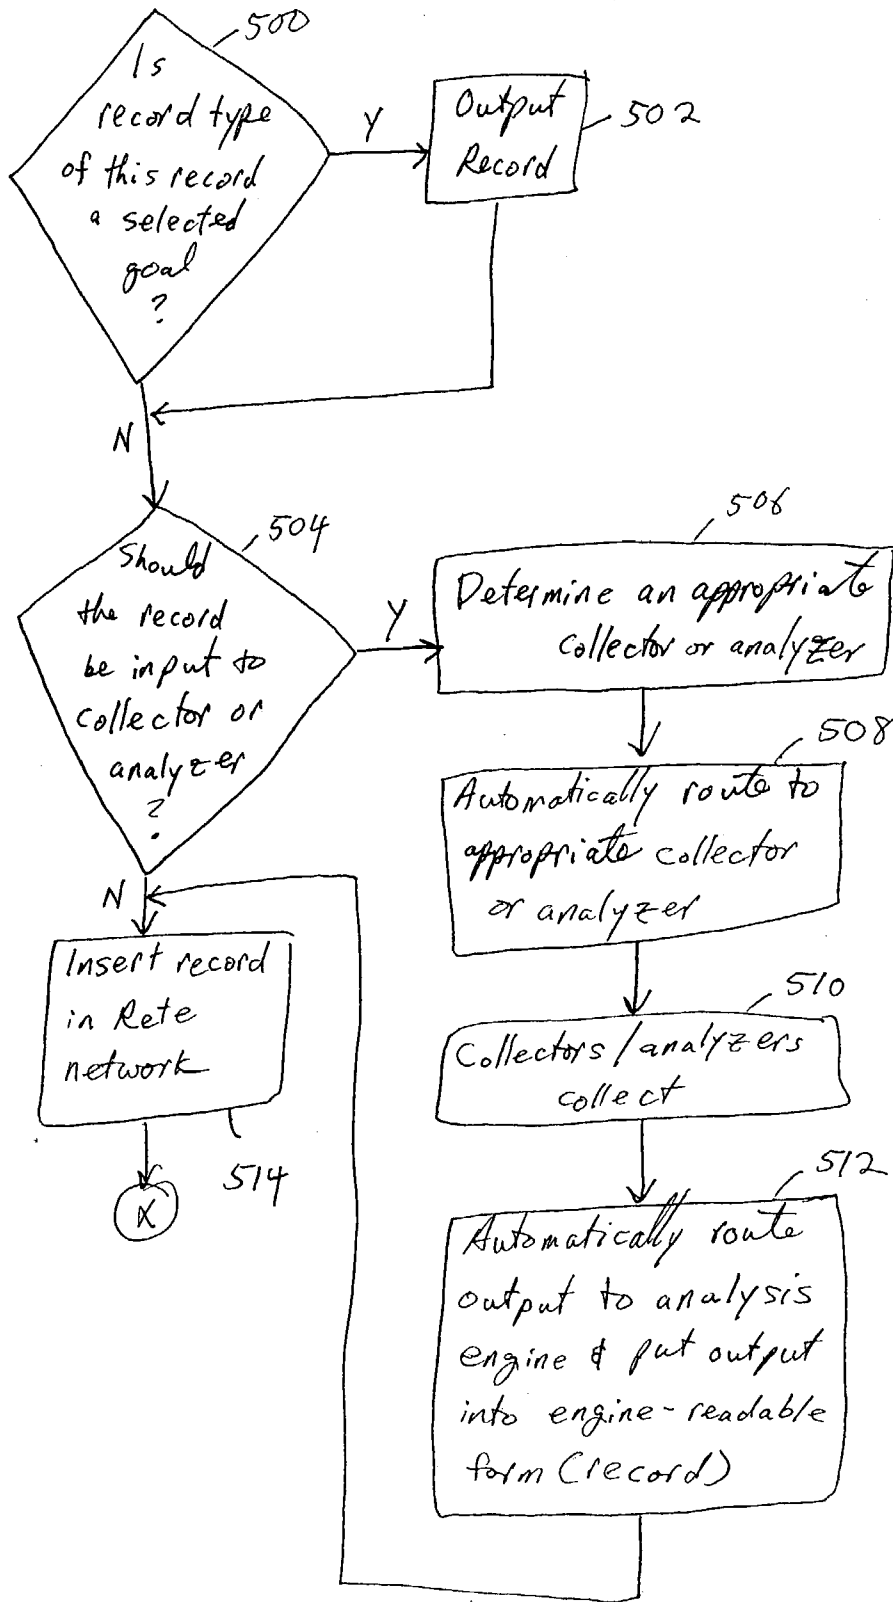 500
Is
record type
of this record
a selected
goal
?
Y
Output
Record
502
N
504
Should
the record
be input to
collector or
analyzer
?
Y
506
Determine an appropriate
collector or analyzer
508
Automatically route to
appropriate collector
or analyzer
510
Collectors/analyzers
collect
512
Automatically route
output to analysis
engine & put output
into engine-readable
form (record)
N
Insert record
in Rete
network
514
X